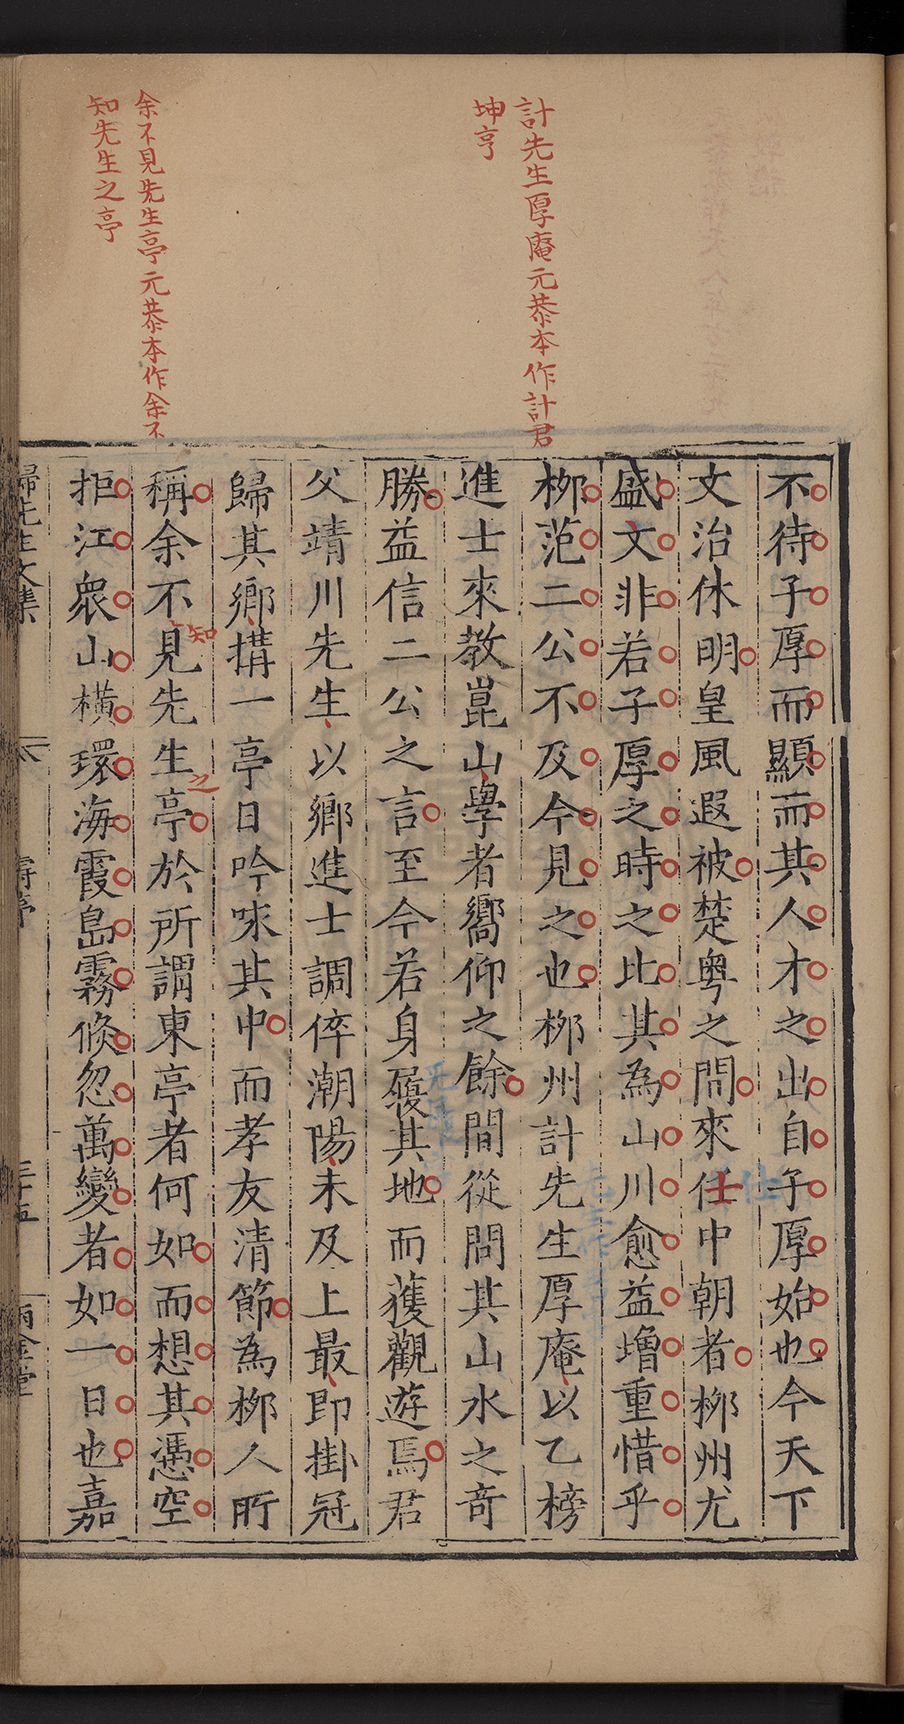 計先生厚庵元恭本作計君
坤亨
余不見先生亭元恭本作余不
知先生之亭
不待子厚而顯而其人才之出自子厚始也今天下
文治休明皇風遐被楚粵之間來任中朝者栁州尤
盛文非若子厚之時之比其為山川愈益增重惜乎
栁范二公不及今見之也栁州計先生厚庵以乙榜
進士來教崑山學者嚮仰之餘間從問其山水之奇
勝益信二公之言至今若身履其地而獲觀遊焉君
父靖川先生以鄉進士調倅潮陽未及上最即掛冠
歸其鄉搆一亭日吟咏其中而孝友清節為栁人所
稱余不見先生亭於所謂東亭者何如而想其憑空
知
之
拒江衆山橫環海霞島霧倏忽萬變者如一日也嘉
歸先生文集
壽亭
三十五